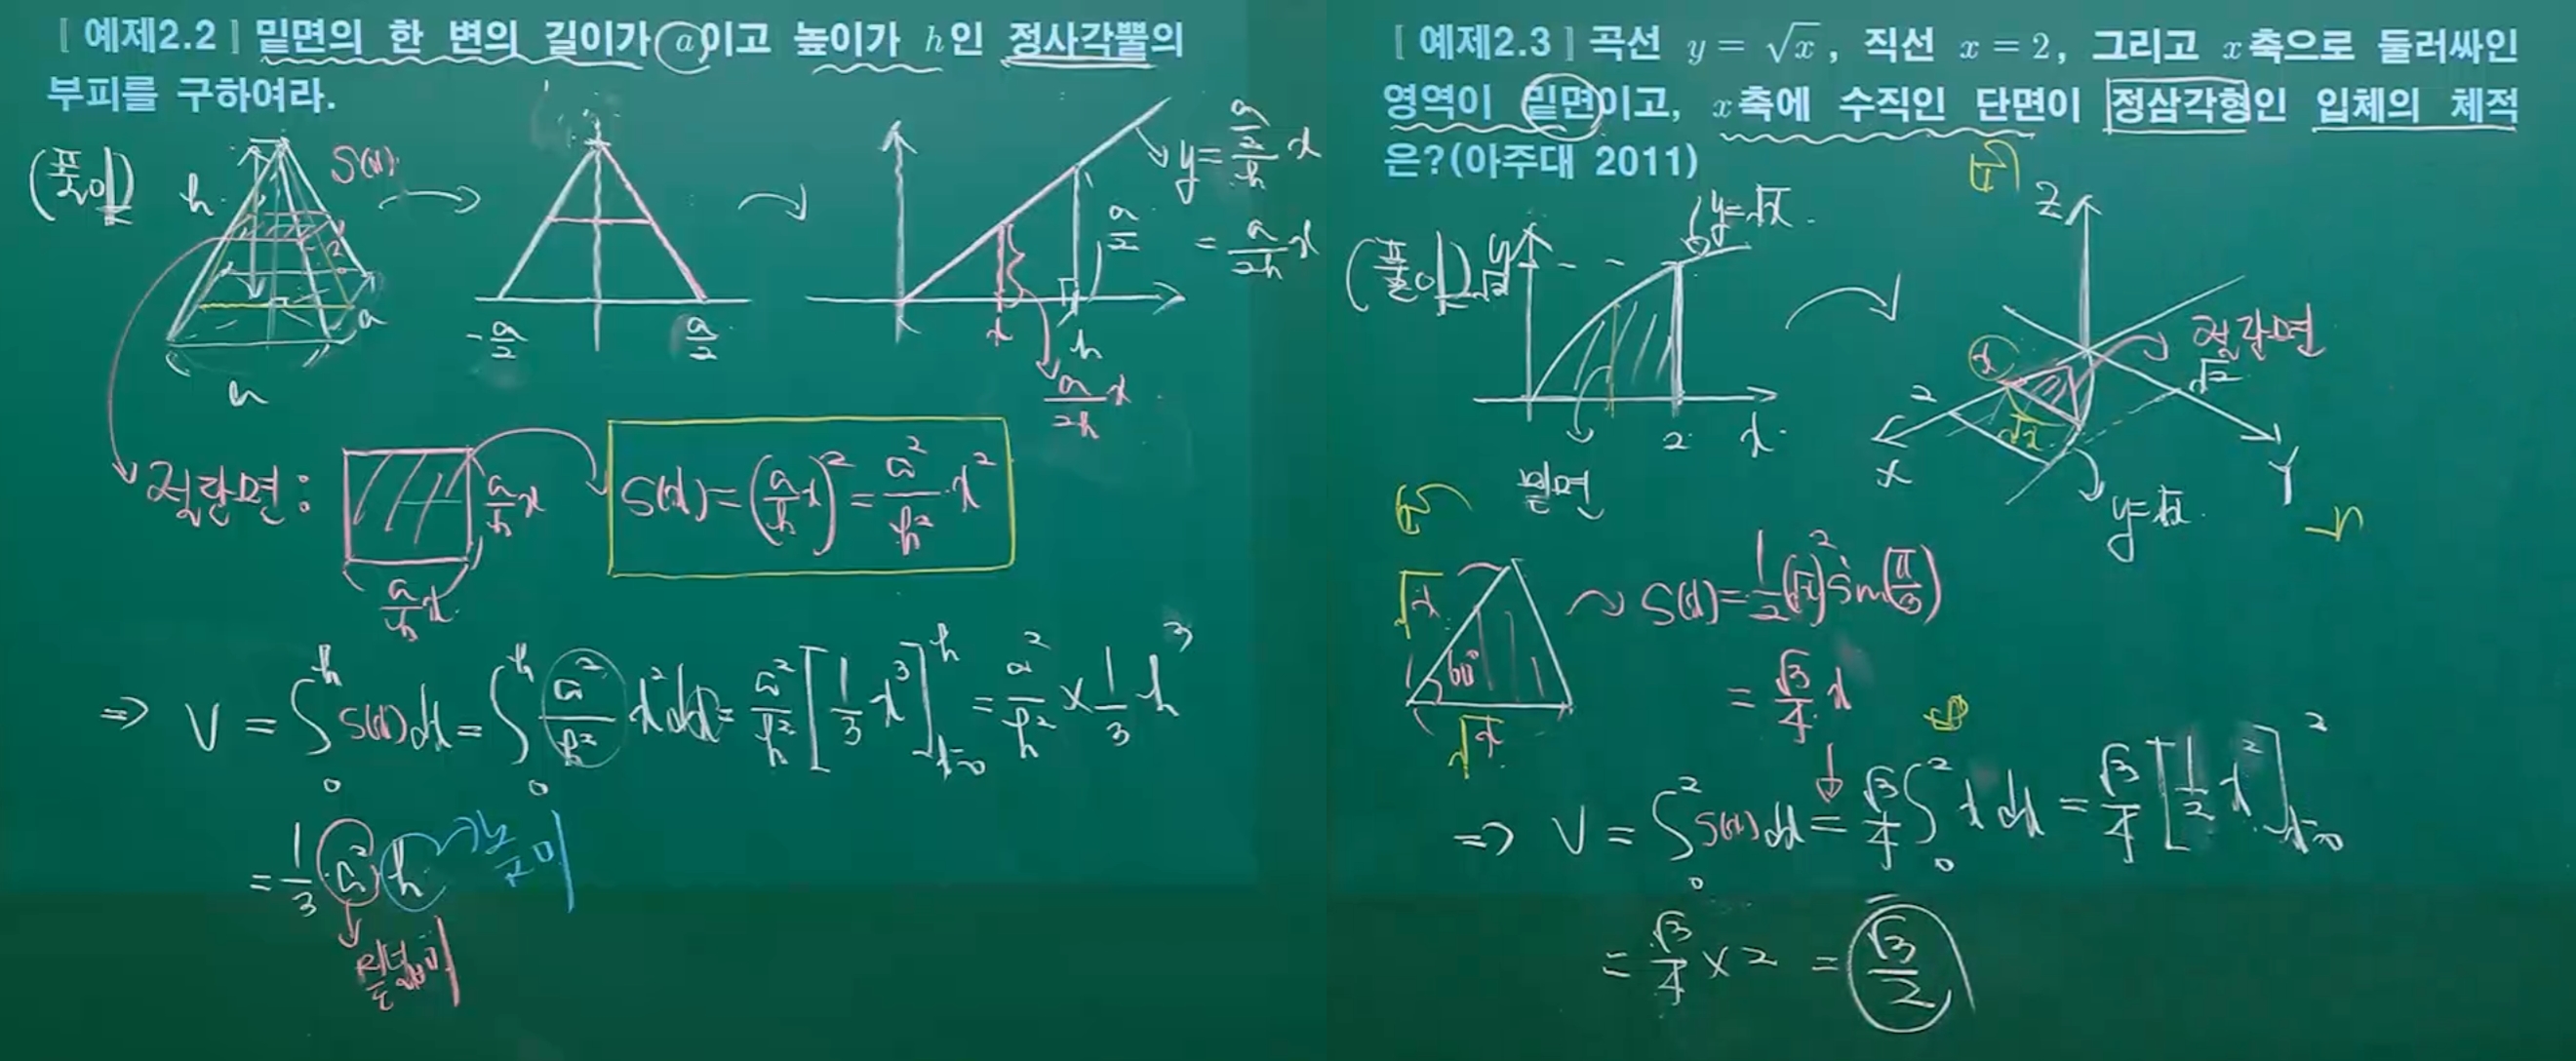 [ 예제2.2 ] 밑면의 한 변의 길이가 a이고 높이가 h인 정사각뿔의
부피를 구하여라.
(풀이)
h
S(x)
a
a
-a/2
a/2
x
h
a/2
y = (a/2)/h x
= a/2h x
a/2h x
절단면 :
a/h x
a/h x
S(x) = (a/h x)² = a²/h² x²
⇒ V = ∫₀ʰ S(x)dx = ∫₀ʰ a²/h² x²dx = a²/h² [1/3 x³]ʰₓ₌₀ = a²/h² × 1/3 h³
= 1/3 a² h
높이
밑넓이
[ 예제2.3 ] 곡선 y = √x , 직선 x = 2, 그리고 x축으로 둘러싸인
영역이 밑면이고, x축에 수직인 단면이 정삼각형인 입체의 체적
은?(아주대 2011)
(풀이)
y
√2
y=√x
2
x
밑면
Z
절단면
x
2
√2
√x
X
Y
y=√x
√x
60°
√x
S(x) = 1/2 (√x)² sin(π/3)
= √3/4 x
⇒ V = ∫₀² S(x)dx = √3/4 ∫₀² x dx = √3/4 [1/2 x²]²ₓ₌₀
= √3/4 × 2 = √3/2